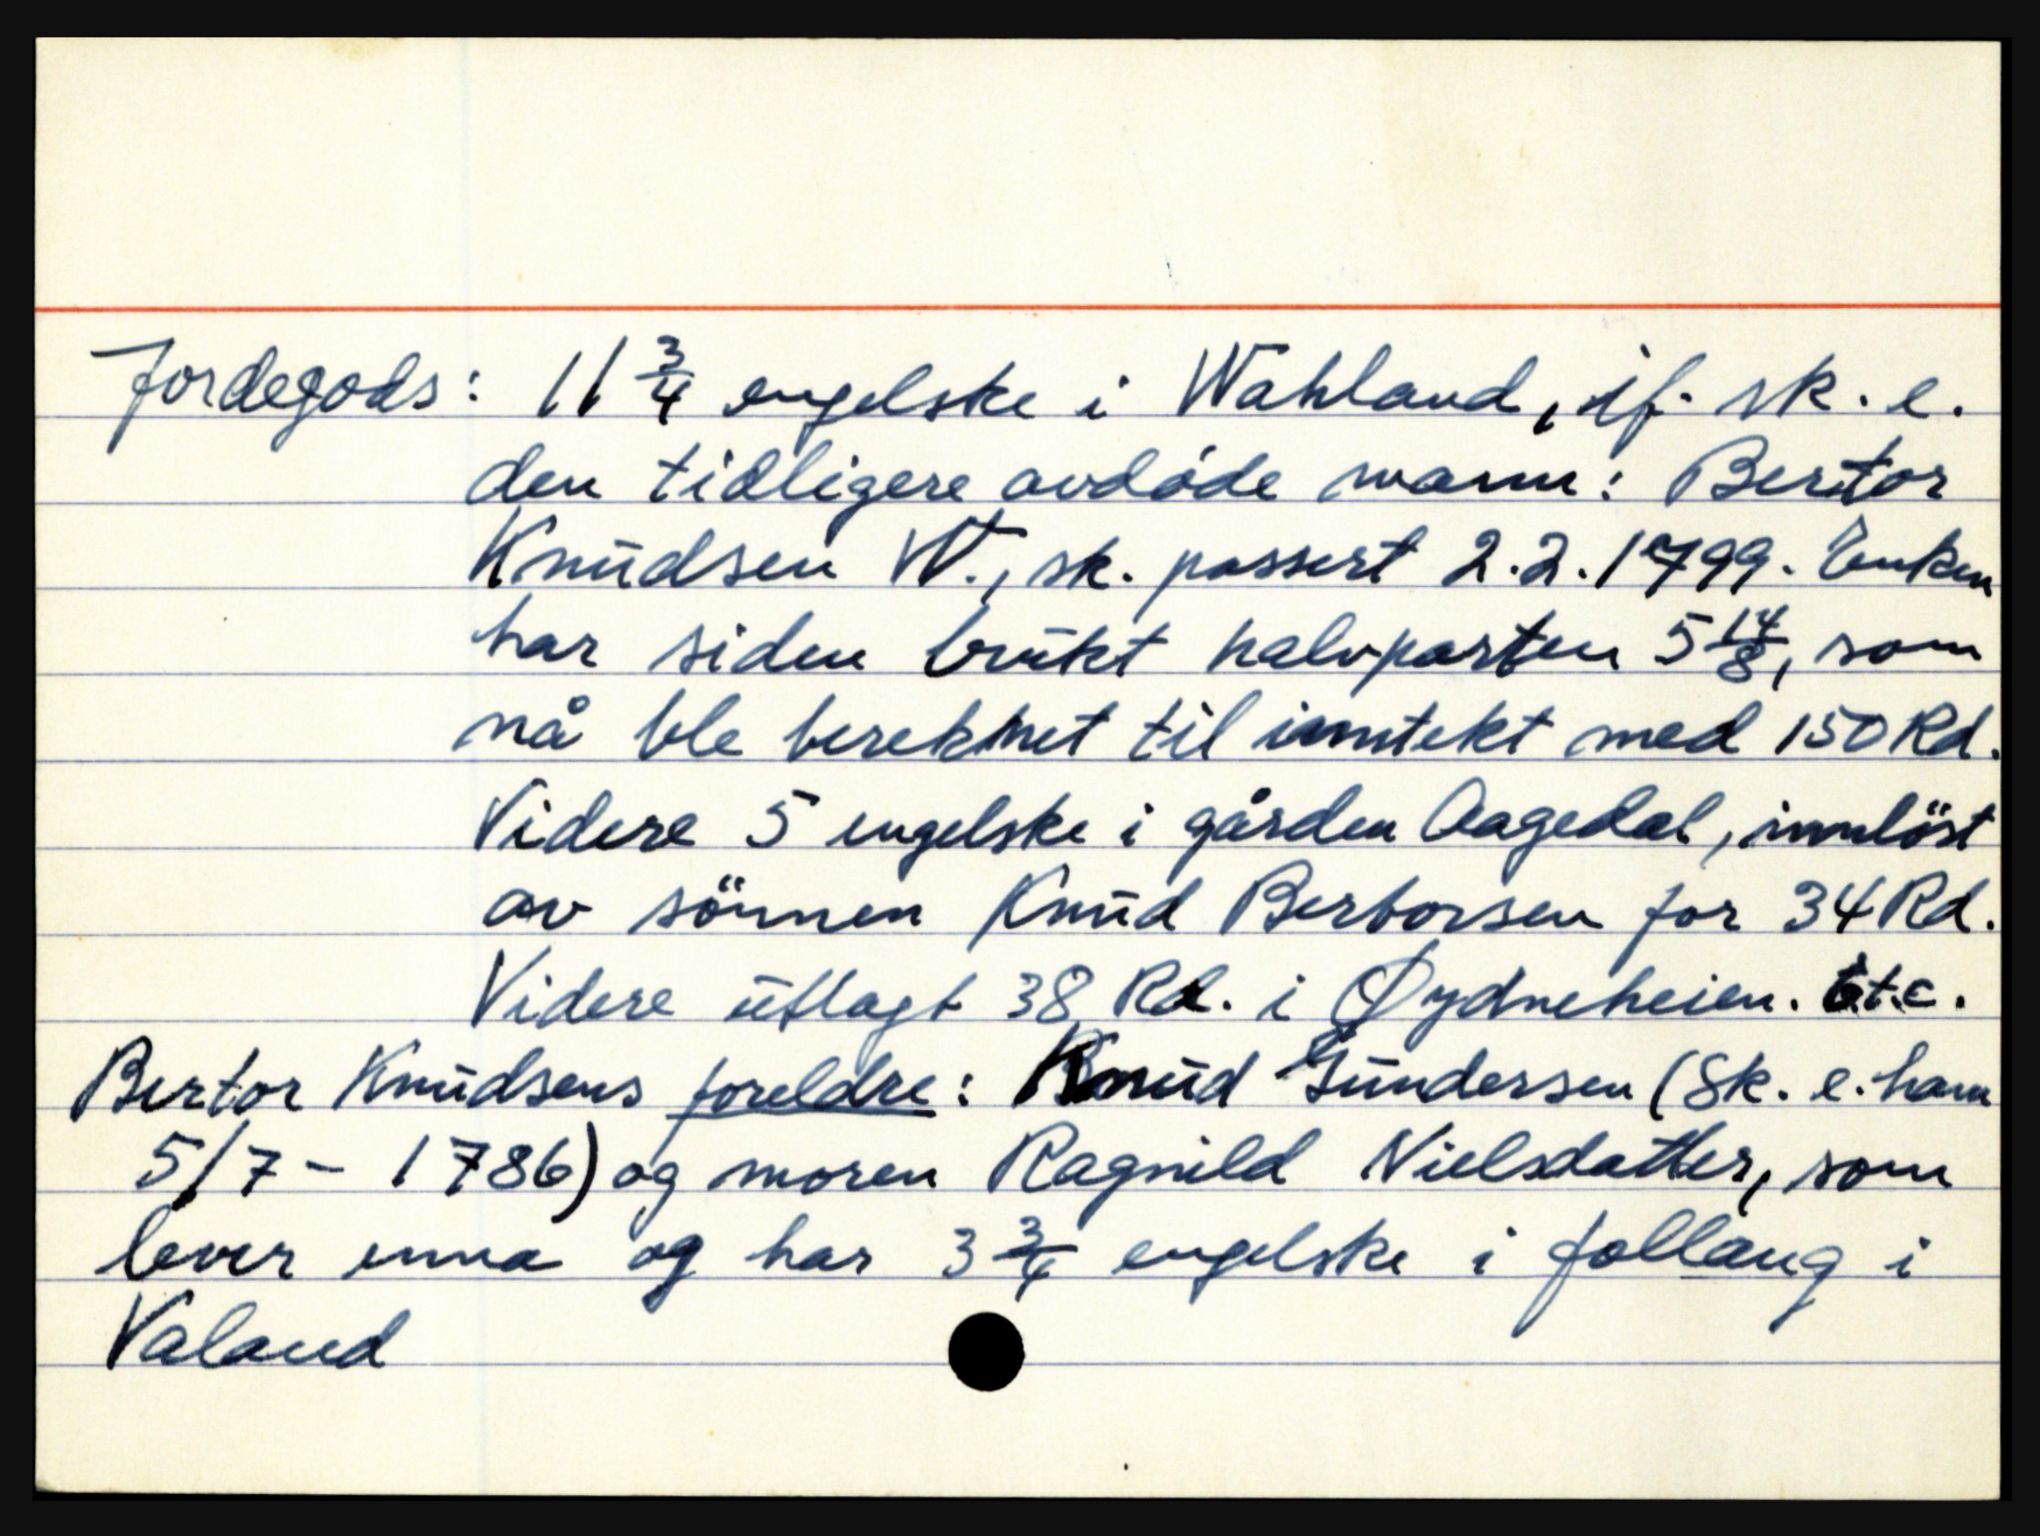 Jordegods: 11 3/4 engelske i Wahland, if. sk. e.
den tidligere avdøde mann: Bertor
Knudsen W., sk. passert 2.2.1799. Enken
har siden brukt halvparten 5 14/8, som
nå ble bereknet til inntekt med 150 Rd.
Videre 5 engelske i gården Aagedal, innlöst
av sönnen Knud Bertorsen for 34 Rd.
Videre utlagt 38 Rd. i Øydneheien. Etc.
Bertor Knudsens foreldre: Knud Gundersen (Sk. e. ham
5/7 - 1786) og moren Ragnild Nielsdatter, som
lever enna og har 3 3/4 engelske i follaug i
Valand